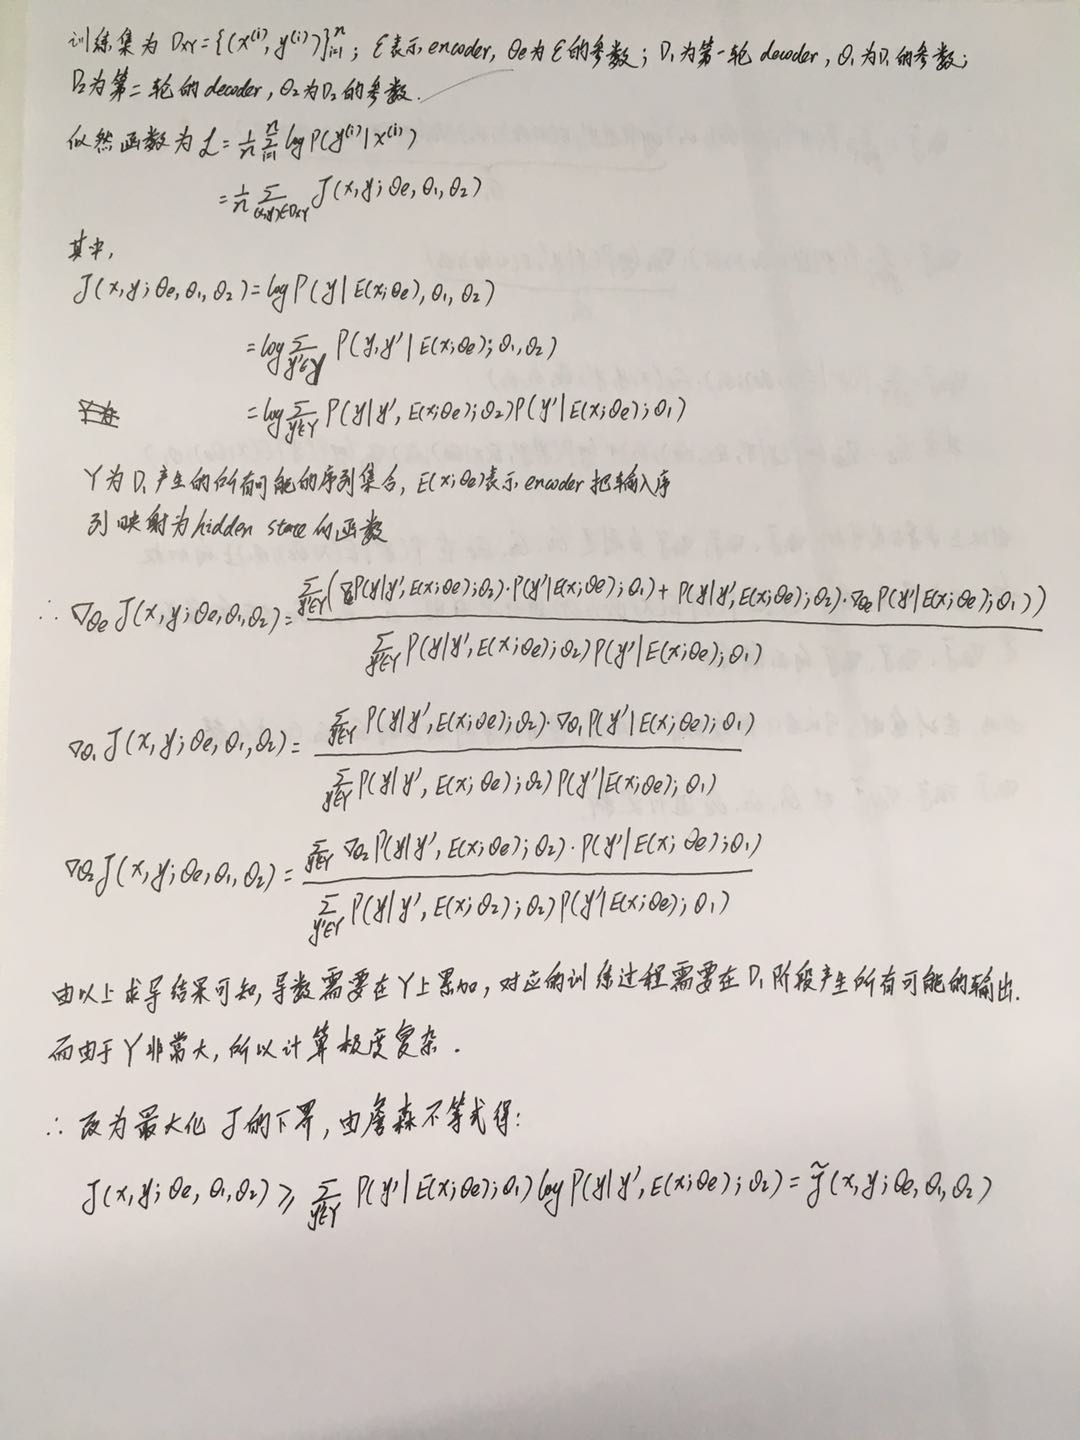 训练集为 D_XY={(x^(i), y^(i))}_{i=1}^n; ℰ表示 encoder, θe为ℰ的参数; D₁为第一轮 decoder, θ₁为D₁的参数;
D₂为第二轮的 decoder, θ₂为D₂的参数.
似然函数为 ℒ = 1/n Σ_{i=1}^n log P(y^(i)|x^(i))
= 1/n Σ_{(x,y)∈D_XY} J(x,y;θe,θ₁,θ₂)
其中,
J(x,y;θe,θ₁,θ₂) = log P(y|E(x;θe),θ₁,θ₂)
= log Σ_{y'∈Y} P(y,y'|E(x;θe);θ₁,θ₂)
= log Σ_{y'∈Y} P(y|y',E(x;θe);θ₂)P(y'|E(x;θe);θ₁)
Y为 D₁产生的所有可能的序列集合, E(x;θe)表示 encoder 把输入序
列映射为hidden state的函数
∴ ∇θe J(x,y;θe,θ₁,θ₂) = Σ_{y'∈Y}(∇P(y|y',E(x;θe);θ₂)·P(y'|E(x;θe);θ₁) + P(y|y',E(x;θe);θ₂)·∇θe P(y'|E(x;θe);θ₁))
Σ_{y'∈Y} P(y|y',E(x;θe);θ₂)P(y'|E(x;θe);θ₁)
∇θ₁ J(x,y;θe,θ₁,θ₂) = Σ_{y'∈Y} P(y|y',E(x;θe);θ₂)·∇θ₁ P(y'|E(x;θe);θ₁)
Σ_{y'∈Y} P(y|y',E(x;θe);θ₂)P(y'|E(x;θe);θ₁)
∇θ₂ J(x,y;θe,θ₁,θ₂) = Σ_{y'∈Y} ∇θ₂ P(y|y',E(x;θe);θ₂)·P(y'|E(x;θe);θ₁)
Σ_{y'∈Y} P(y|y',E(x;θ₂);θ₂)P(y'|E(x;θe);θ₁)
由以上求导结果可知, 导数需要在Y上累加, 对应的训练过程需要在 D₁阶段产生所有可能的输出.
而由于Y非常大, 所以计算极度复杂.
∴ 改为最大化 J的下界, 由詹森不等式得:
J(x,y;θe,θ₁,θ₂) ⩾ Σ_{y'∈Y} P(y'|E(x;θe);θ₁) log P(y|y',E(x;θe);θ₂) = J̃(x,y;θe,θ₁,θ₂)